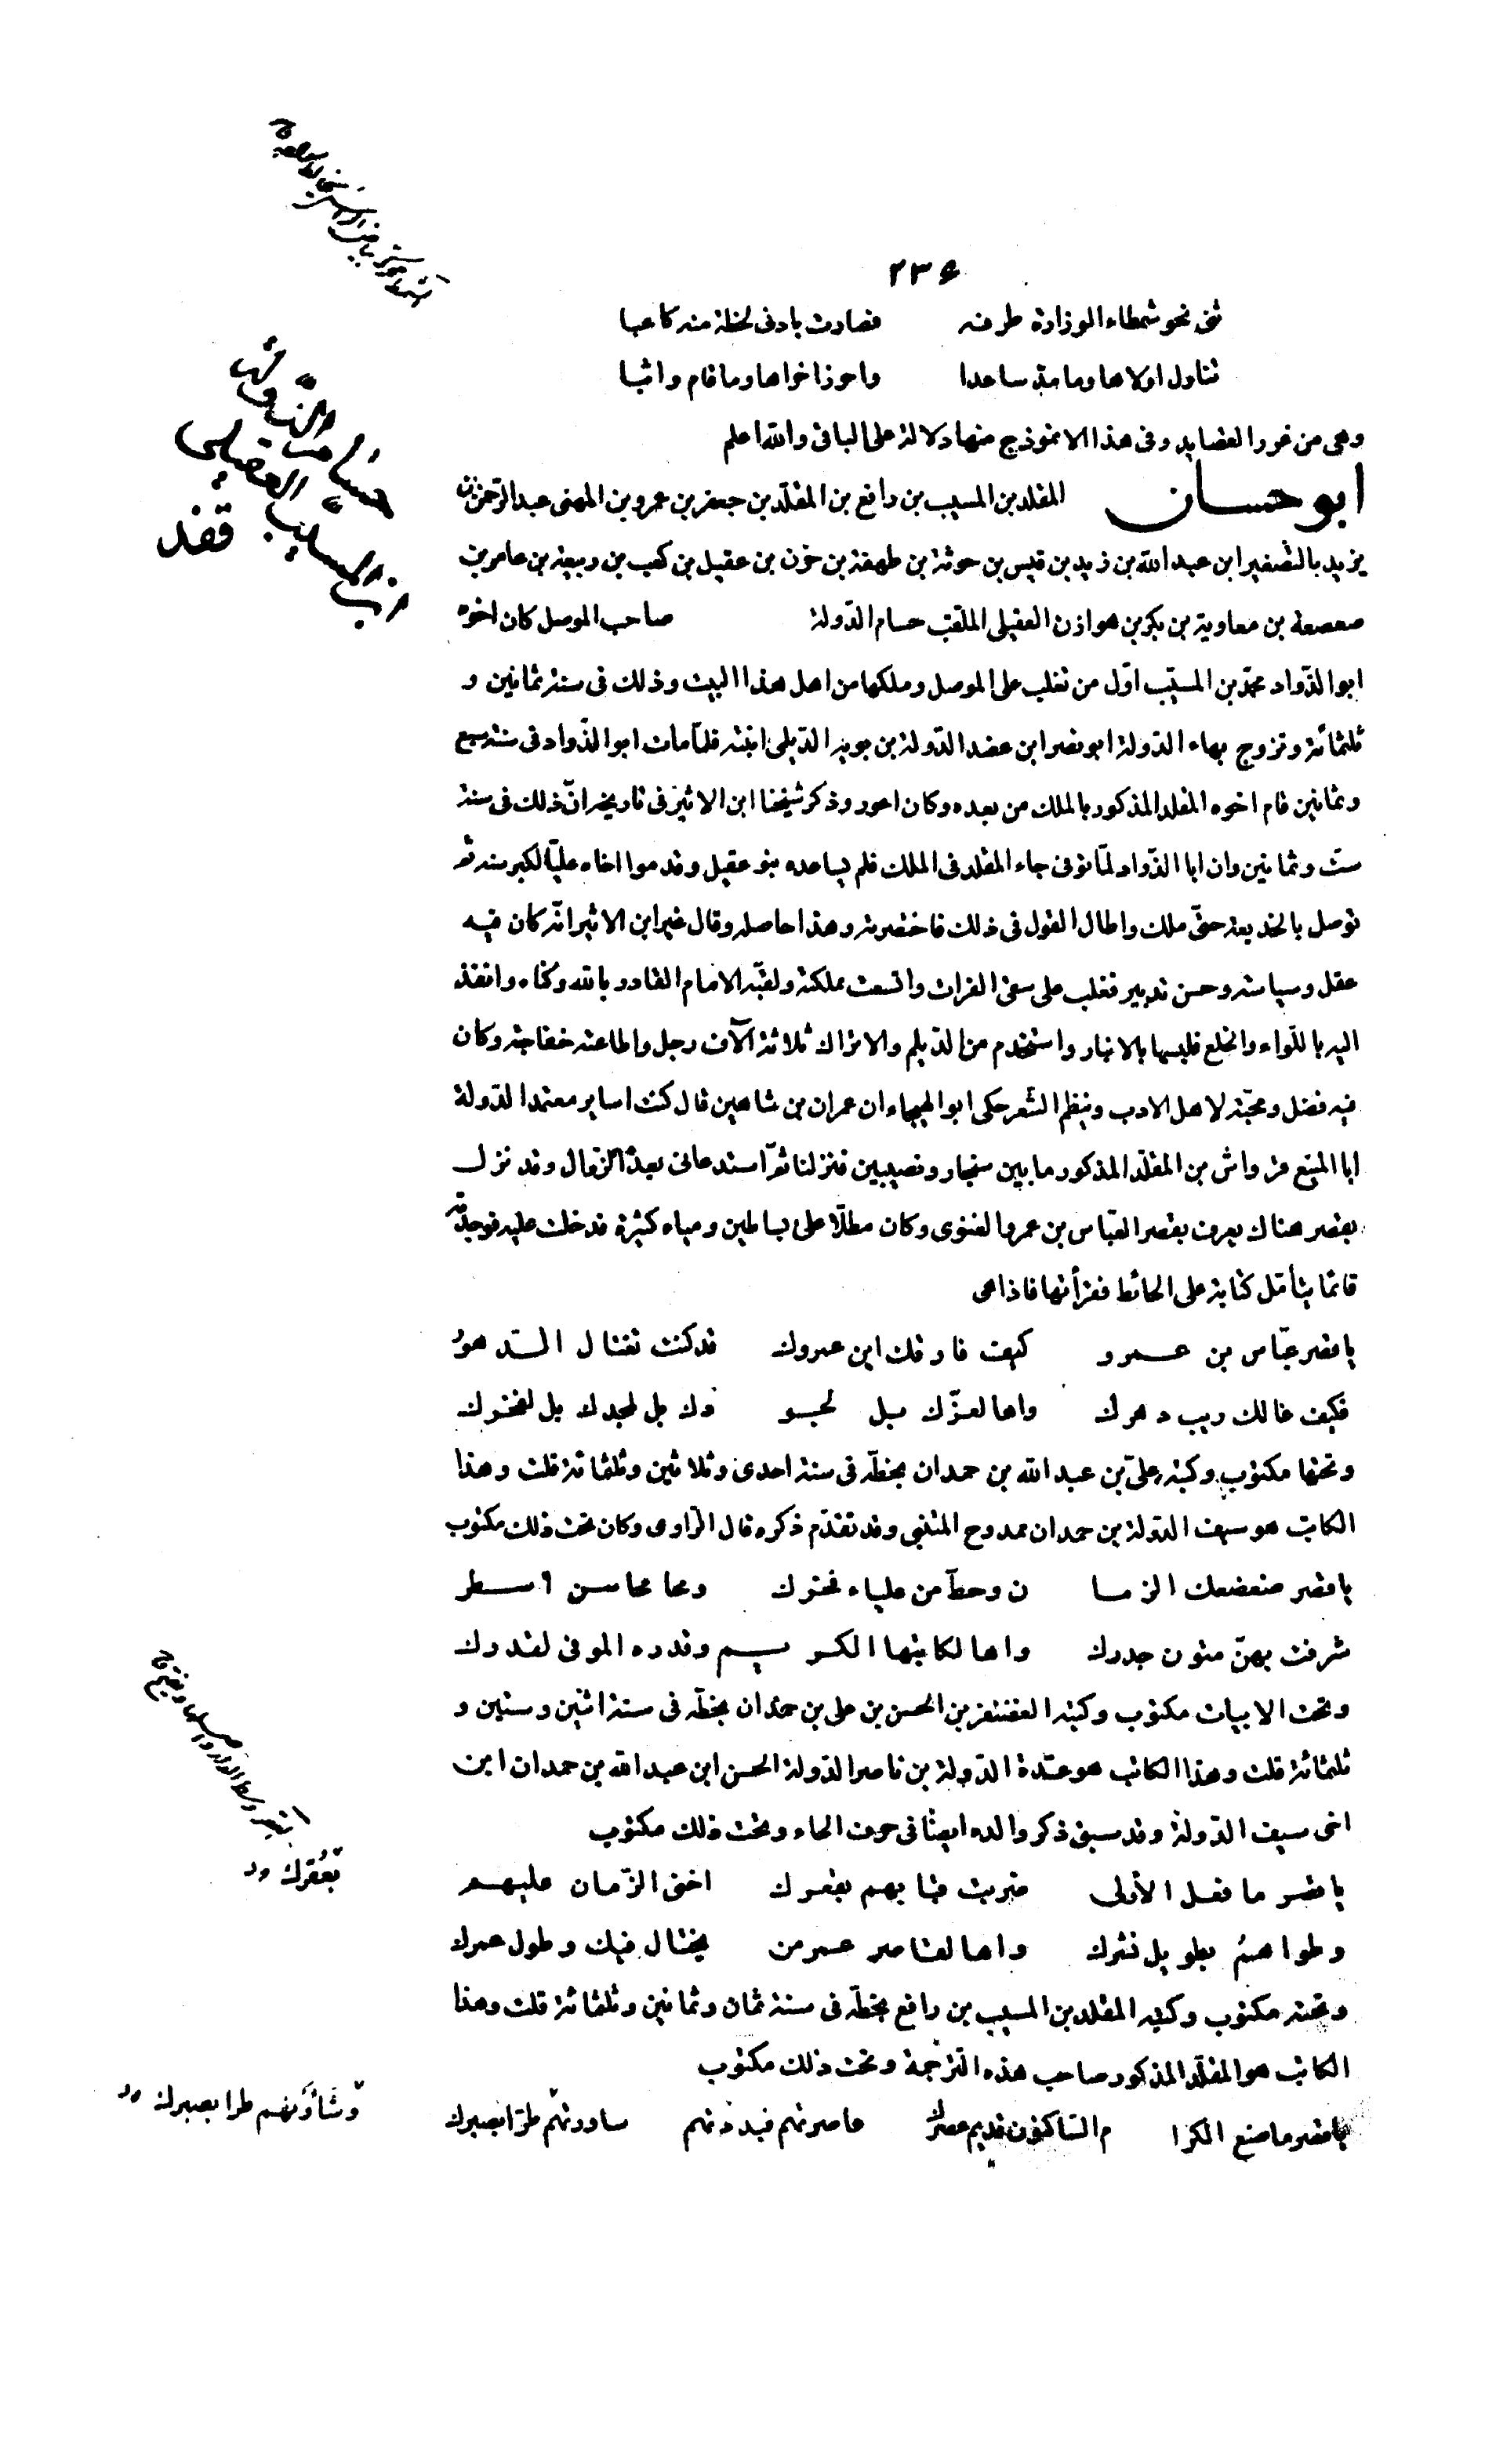 ٢٣٤
ثنى نحو شمطاء الوزارة طرفه فصارت بادنى لحظة منه كاعبا
تناول اولاها وما مد ساعدا واحرز اخراها وما قام واثبا
وهى من غرر القصايد وفى هذا الانموذج منها دلالة على الباقى والله اعلم
ابو حسان المقلد بن المسيب بن رافع بن المقلد بن جعفر بن عمرو بن المهنى عبد الرحمن بن
يزيد بالتصغير ابن عبد الله بن زيد بن قيس بن حوثة بن طهفة بن حزن بن عقيل بن كعب بن ربيعة بن عامر بن
صعصعة بن معاوية بن بكر بن هوازن العقيلى الملقب حسام الدولة صاحب الموصل كان اخوه
ابو الذواد محمد بن المسيب اول من تغلب على الموصل وملكها من اهل هذا البيت وذلك فى سنة ثمانين و
ثلثمائة وتزوج بهاء الدولة ابو نصر ابن عضد الدولة بن بويه الديلمى ابنته فلما مات ابو الذواد فى سنة سبع
وثمانين قام اخوه المقلد المذكور بالملك من بعده وكان اعور وذكر شيخنا ابن الاثير فى تاريخه ان ذلك فى سنة
ست وثمانين وان ابا الذواد لما توفى جاء المقلد فى الملك فلم يساعده بنو عقيل وقدموا اخاه عليا لكبر سنه ثم
توصل بالخديعة حتى ملك واطال القول فى ذلك فاختصرته وهذا حاصله وقال غير ابن الاثير انه كان فيه
عقل وسياسة وحسن تدبير فغلب على سقى الفرات واتسعت مملكته ولقبه الامام القادر بالله وكناه وانفذ
اليه باللواء والخلع فلبسها بالانبار واستخدم من الديلم والاتراك ثلاثة آلاف رجل واطاعته خفاجة وكان
فيه فضل ومحبة لاهل الادب وينظم الشعر حكى ابو الهيجاء ان عمران بن شاهين قال كنت اساير معتمد الدولة
ابا المنيع قرواش بن المقلد المذكور ما بين سنجار ونصيبين فنزلنا ثم استدعانى بعد الزوال وقد نزل
بقصر هناك يعرف بقصر العباس بن عمرو الغنوى وكان مطلا على بساطين ومياه كثيرة فدخلت عليه فوجدته
قائما يتأمل كتابة على الحائط فقرأتها فاذا هى
يا قصر عباس بن عمرو كيف فارقك ابن عمروك قد كنت تغتال الدهور
فكيف غالك ريب دهرك واها لعزك بل لجو دك بل لمجدك بل لفخرك
وتحتها مكتوب وكتبه على بن عبد الله بن حمدان بخطه فى سنة احدى وثلاثين وثلثمائة قلت وهذا
الكاتب هو سيف الدولة بن حمدان ممدوح المتنبى وقد تقدم ذكره قال الراوى وكان تحت ذلك مكتوب
يا قصر ضعضعك الزما ن وحط من علياء فخرك ومحا محاسن اسطر
شرفت بهن متون جدرك واها لكاتبها الكر يم وقدره الموفى لقدرك
وتحت الابيات مكتوب وكتبه الغضنفر بن الحسن بن على بن حمدان بخطه فى سنة اثنين وستين و
ثلثمائة قلت وهذا الكاتب هو عدة الدولة بن ناصر الدولة الحسن ابن عبد الله بن حمدان ابن
اخى سيف الدولة وقد سبق ذكر والده ايضا فى حرف الحاء وتحت ذلك مكتوب
يا قصر ما فعل الأولى ضربت قبابهم بقعرك اخنى الزمان عليهم
وطواهم بطويل نشرك واها لقاصر عمر من يختال فيك وطول عمرك
وتحته مكتوب وكتبه المقلد بن المسيب بن رافع بخطه فى سنة ثمان وثمانين وثلثمائة قلت وهذا
الكاتب هو المقلد المذكور صاحب هذه الترجمة وتحت ذلك مكتوب
يا قصر ما صنع الكرا م الساكنون قديم عصرك عاصرتهم فبذذتهم ساورتهم طرا بصبرك
حسام الدولة
ابن المسيب العقيلى
بعقرك
وشأوتهم طرا بصبرك